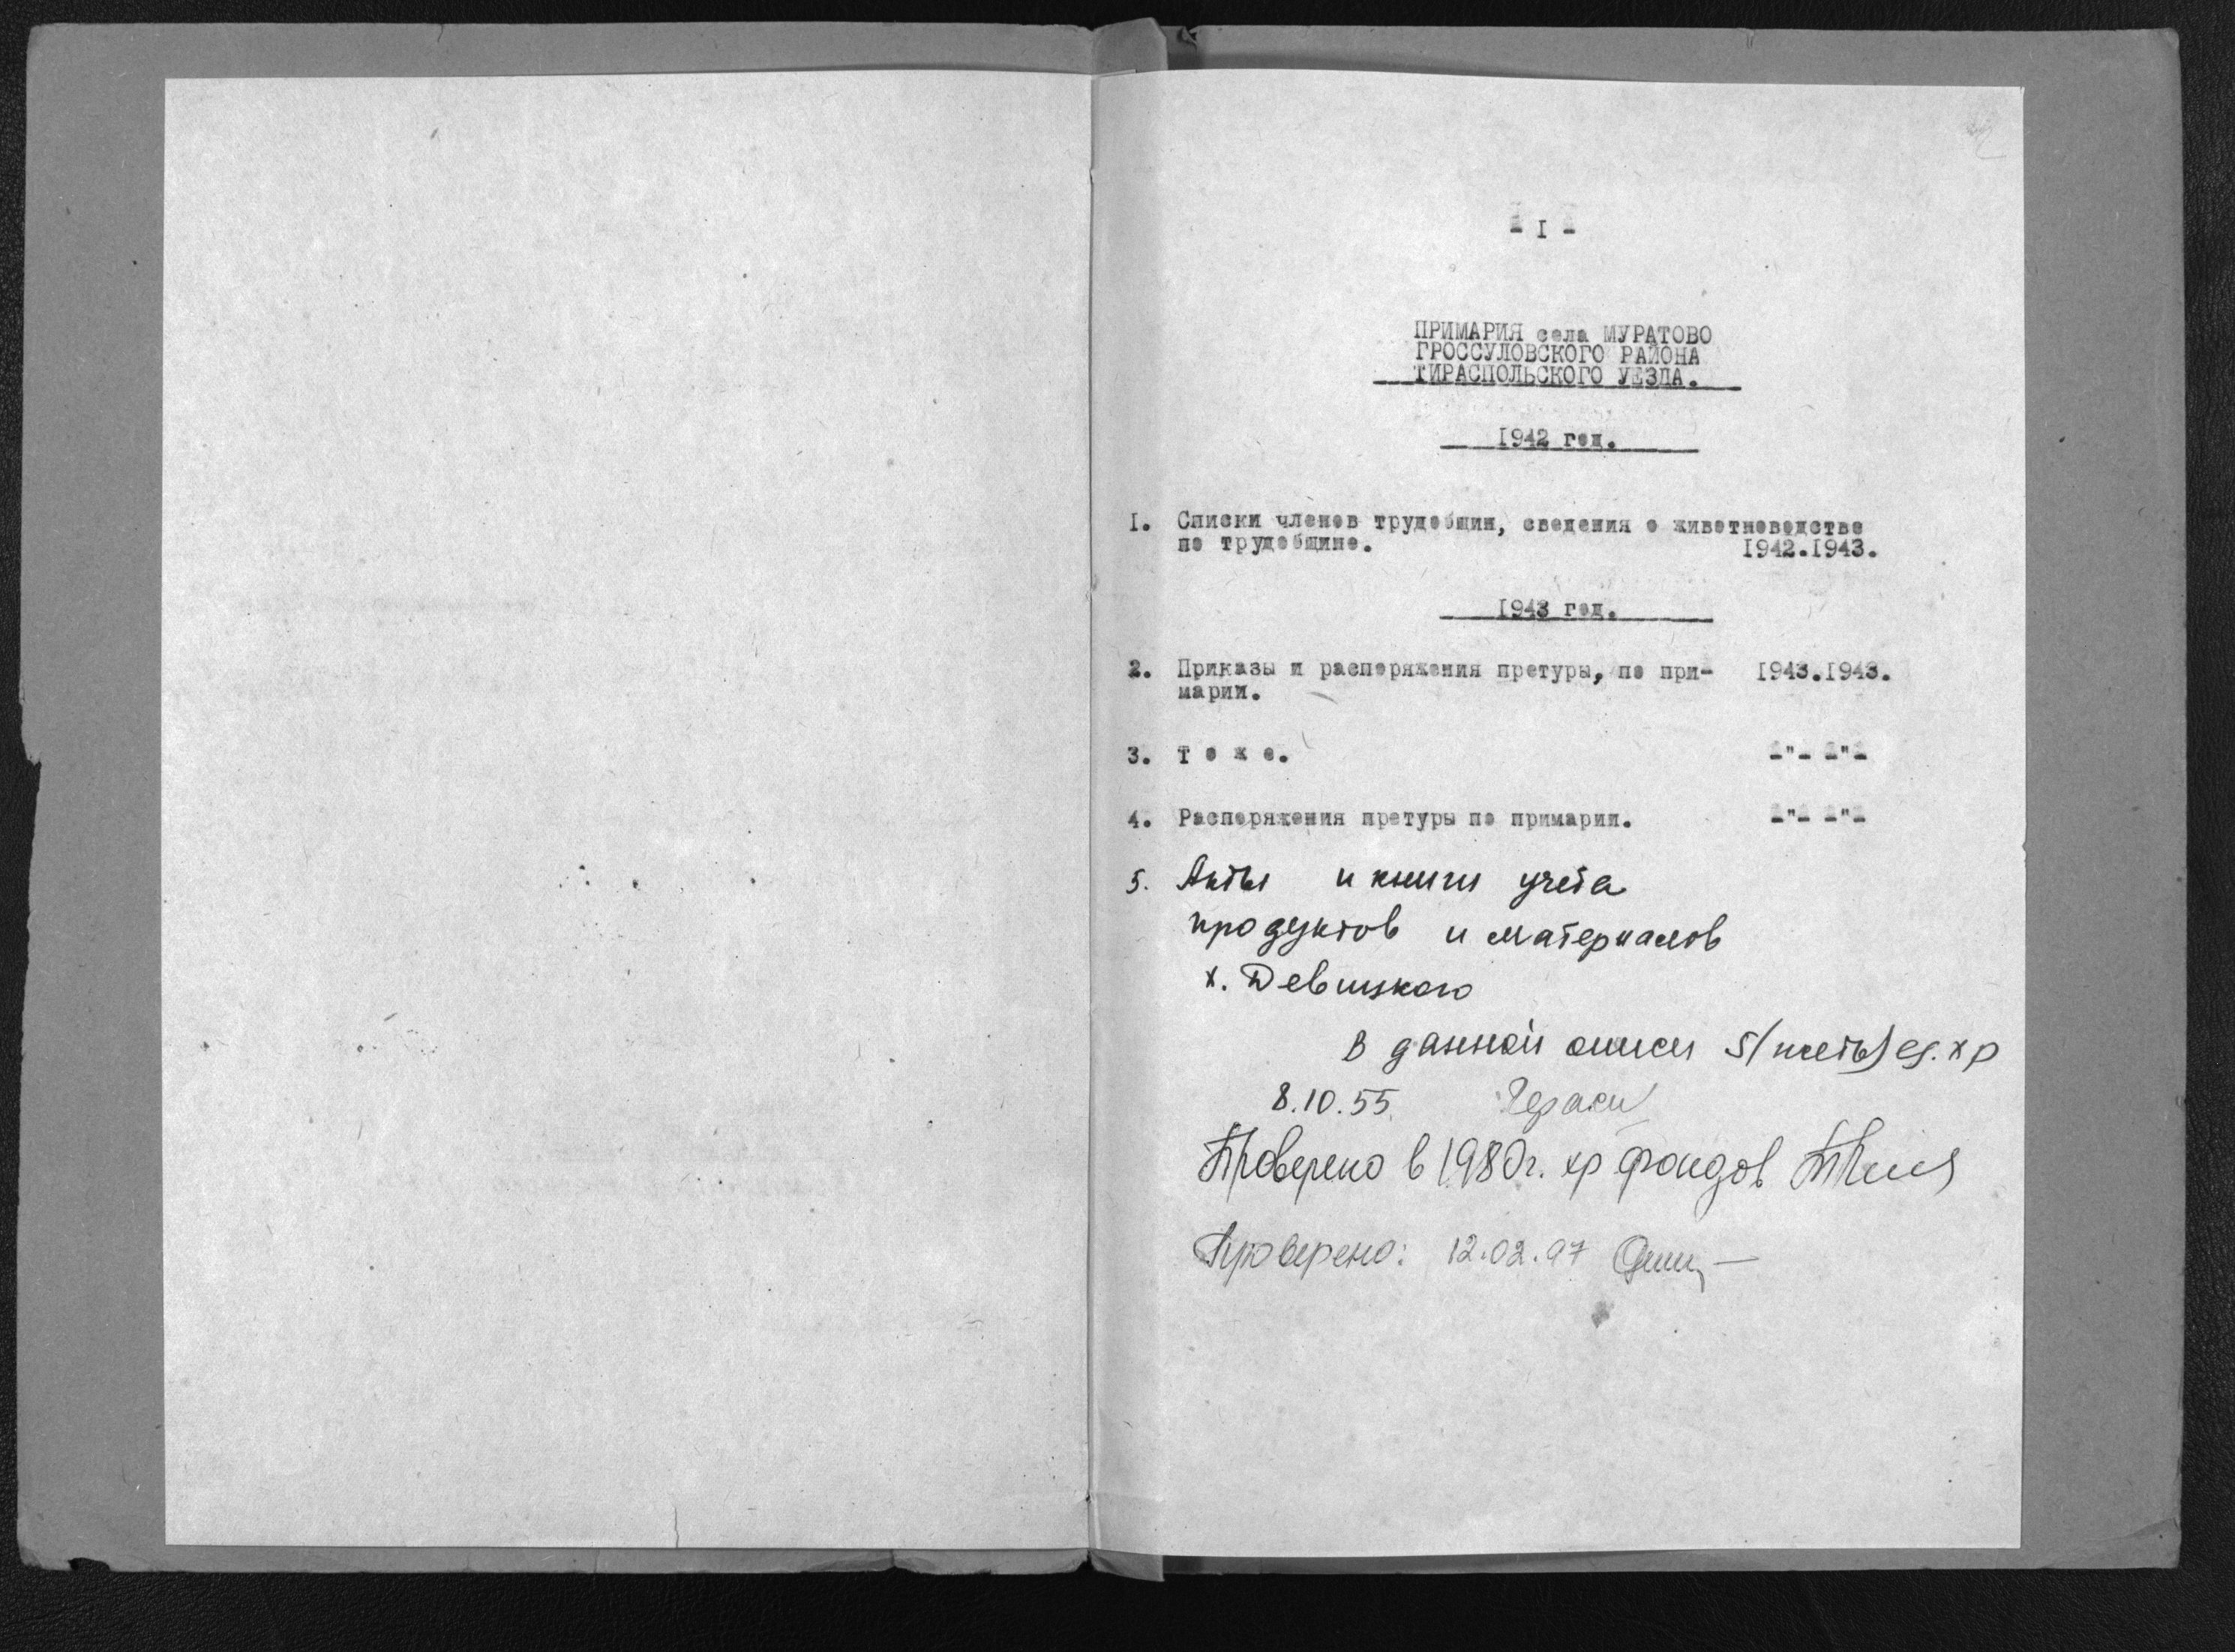 2
- I -
ПРИМАРИЯ села МУРАТОВО
ГРОССУЛОВСКОГО РАЙОНА
ТИРАСПОЛЬСКОГО УЕЗДА.
1942 год.
I. Списки членов трудобщин, сведения о животноводстве
по трудобщине. 1942.1943.
1943 год.
2. Приказы и распоряжения претуры, по при- 1943.1943.
марии.
3. Т о ж е. -"- -"-
4. Распоряжения претуры по примарии. -"- -"-
5. Акты и книги учета
продуктов и материалов
х. Девицкого
В данной описи 5 (пять) ед. хр
8.10.55
Проверено в 1980г. хр фондов
Проверено: 12.02.97